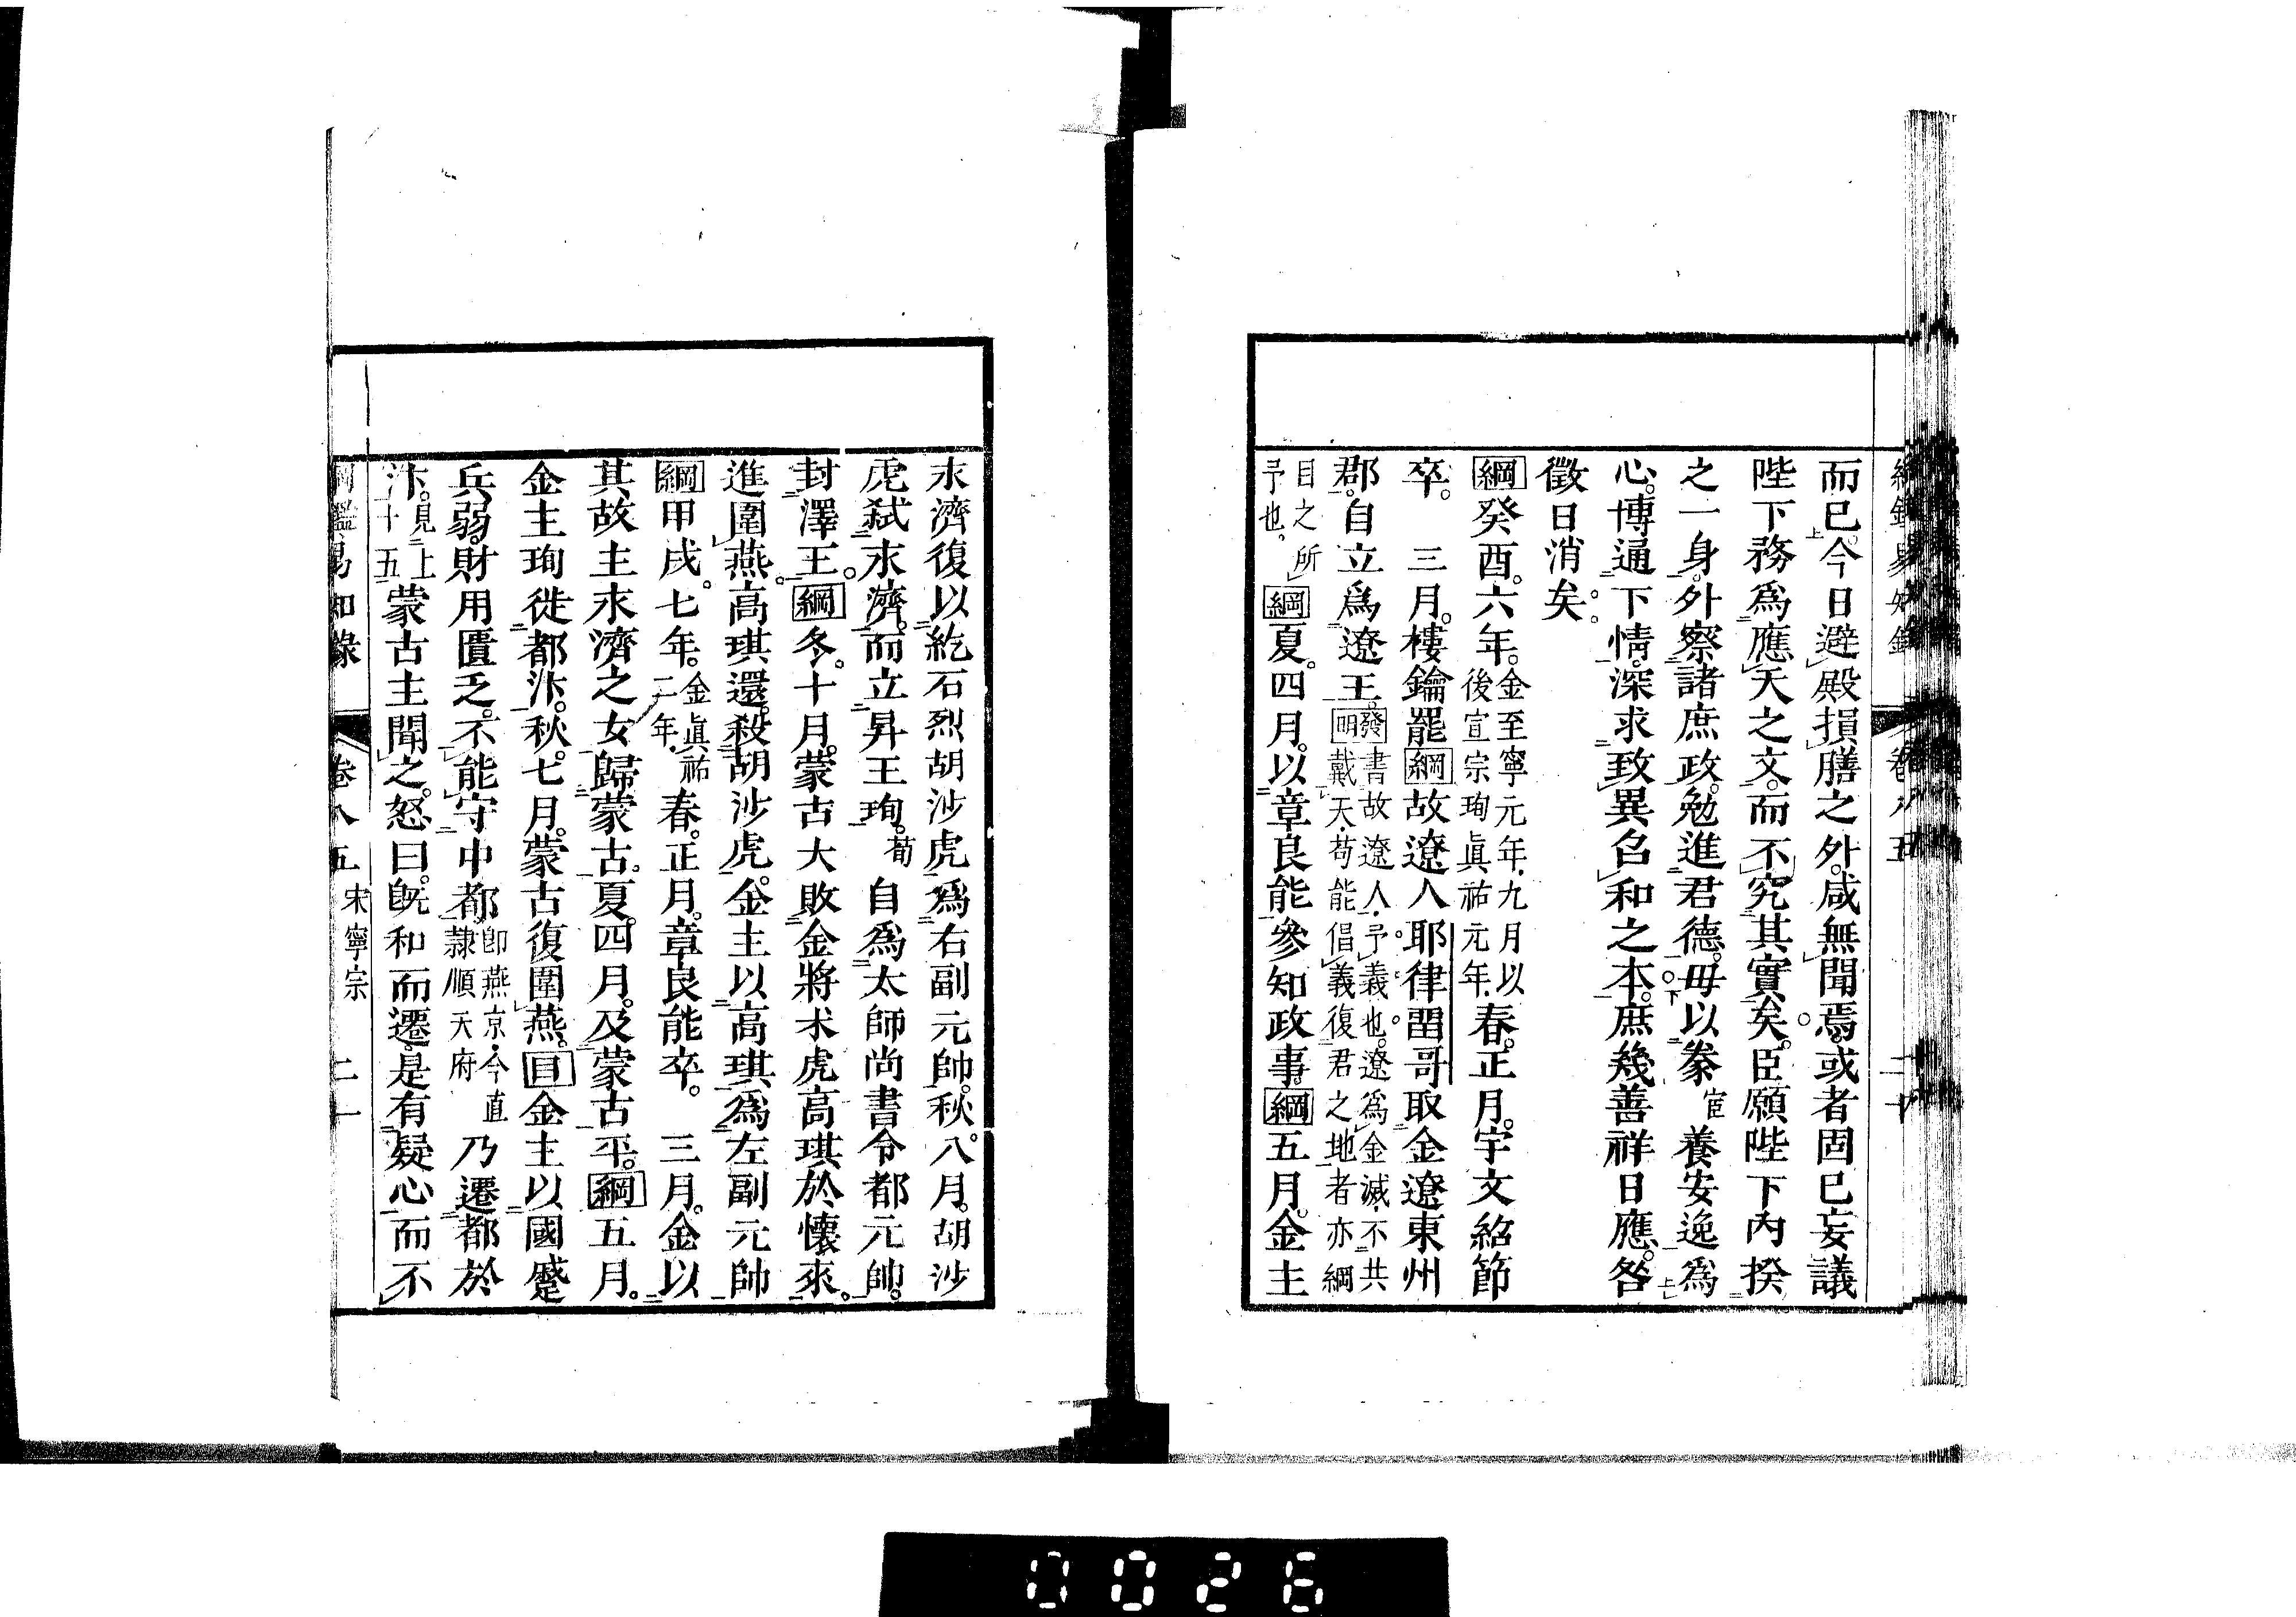 而已今日避殿損膳之外。咸無聞焉。或者固已妄議
陛下務爲應天之文。而不究其實矣。臣願陛下內揆
之一身。外察諸庶政。勉進君德。毋以豢宦養安逸爲
心。博通下情。深求致異召和之本。庶幾善祥日應。咎
徵日消矣。
綱癸酉。六年。金至寧元年。九月以後宣宗珣眞祐元年。春。正月。宇文紹節
卒。三月。樓鑰罷綱故遼人耶律畱哥取金遼東州
郡。自立爲遼王。發明書故遼人。予義也。遼爲金滅。不共戴天。苟能倡義復君之地者亦綱
目之所予也。綱夏。四月。以章良能參知政事。綱五月。金主
永濟復以紇石烈胡沙虎爲右副元帥。秋。八月。胡沙
虎弒永濟。而立昇王珣。荀自爲太師尚書令都元帥。
封澤王。綱冬。十月。蒙古大敗金將术虎高琪於懷來。
進圍燕。高琪還。殺胡沙虎。金主以高琪爲左副元帥
綱甲戌。七年。金眞祐二年。春。正月。章良能卒。三月。金以
其故主永濟之女歸蒙古。夏。四月。及蒙古平。綱五月。
金主珣徙都汴。秋。七月。蒙古復圍燕。目金主以國蹙
兵弱。財用匱乏。不能守中都。卽燕京。今直隸順天府乃遷都於
汴。見上十五蒙古主聞之。怒曰。旣和而遷。是有疑心而不
綱鑑易知錄 卷八五 宋寧宗 二十一
0026